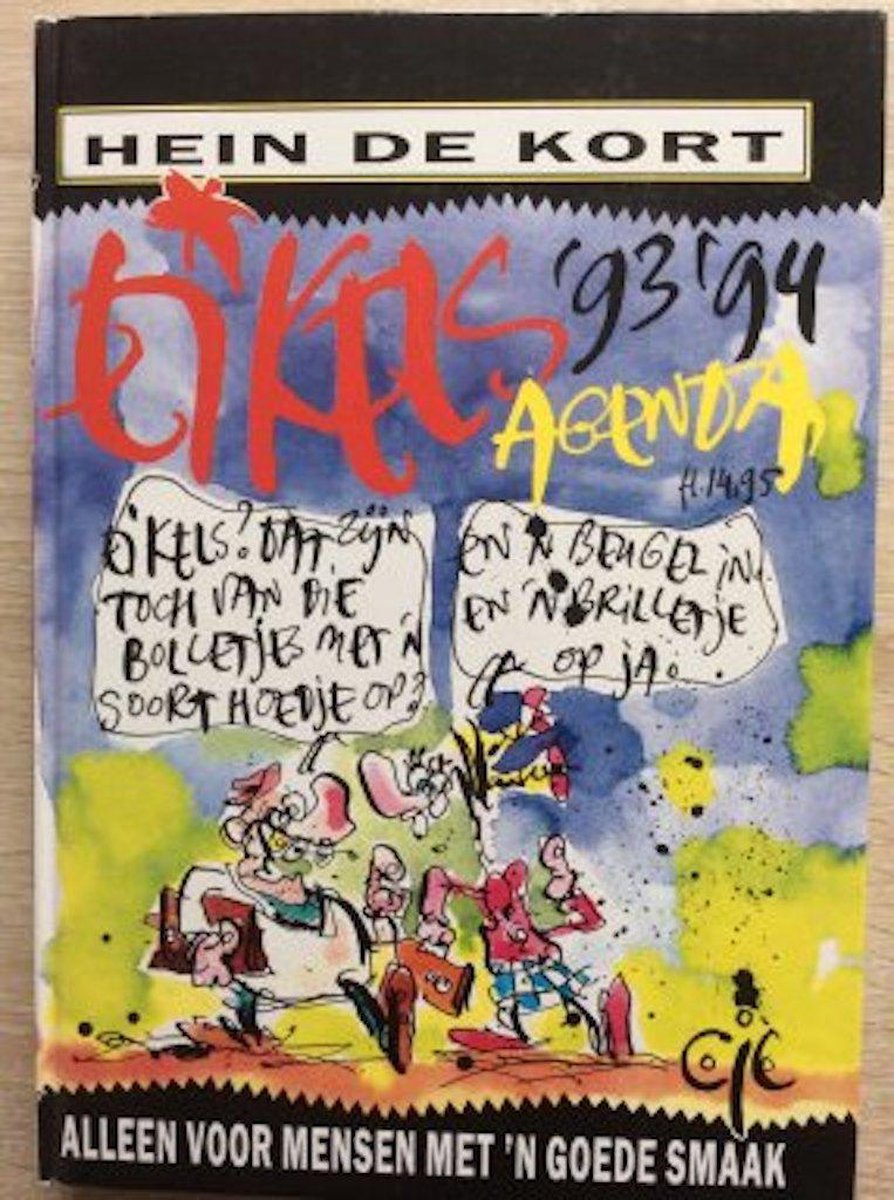 HEIN DE KORT
EIKELS '93 '94
AGENDA
fl. 14,95
EIKELS? DAT ZIJN
TOCH VAN DIE
BOLLETJES MET 'N
SOORT HOEDJE OP?
EN 'N BEUGEL IN
EN 'N BRILLETJE
OP JA.
ALLEEN VOOR MENSEN MET 'N GOEDE SMAAK